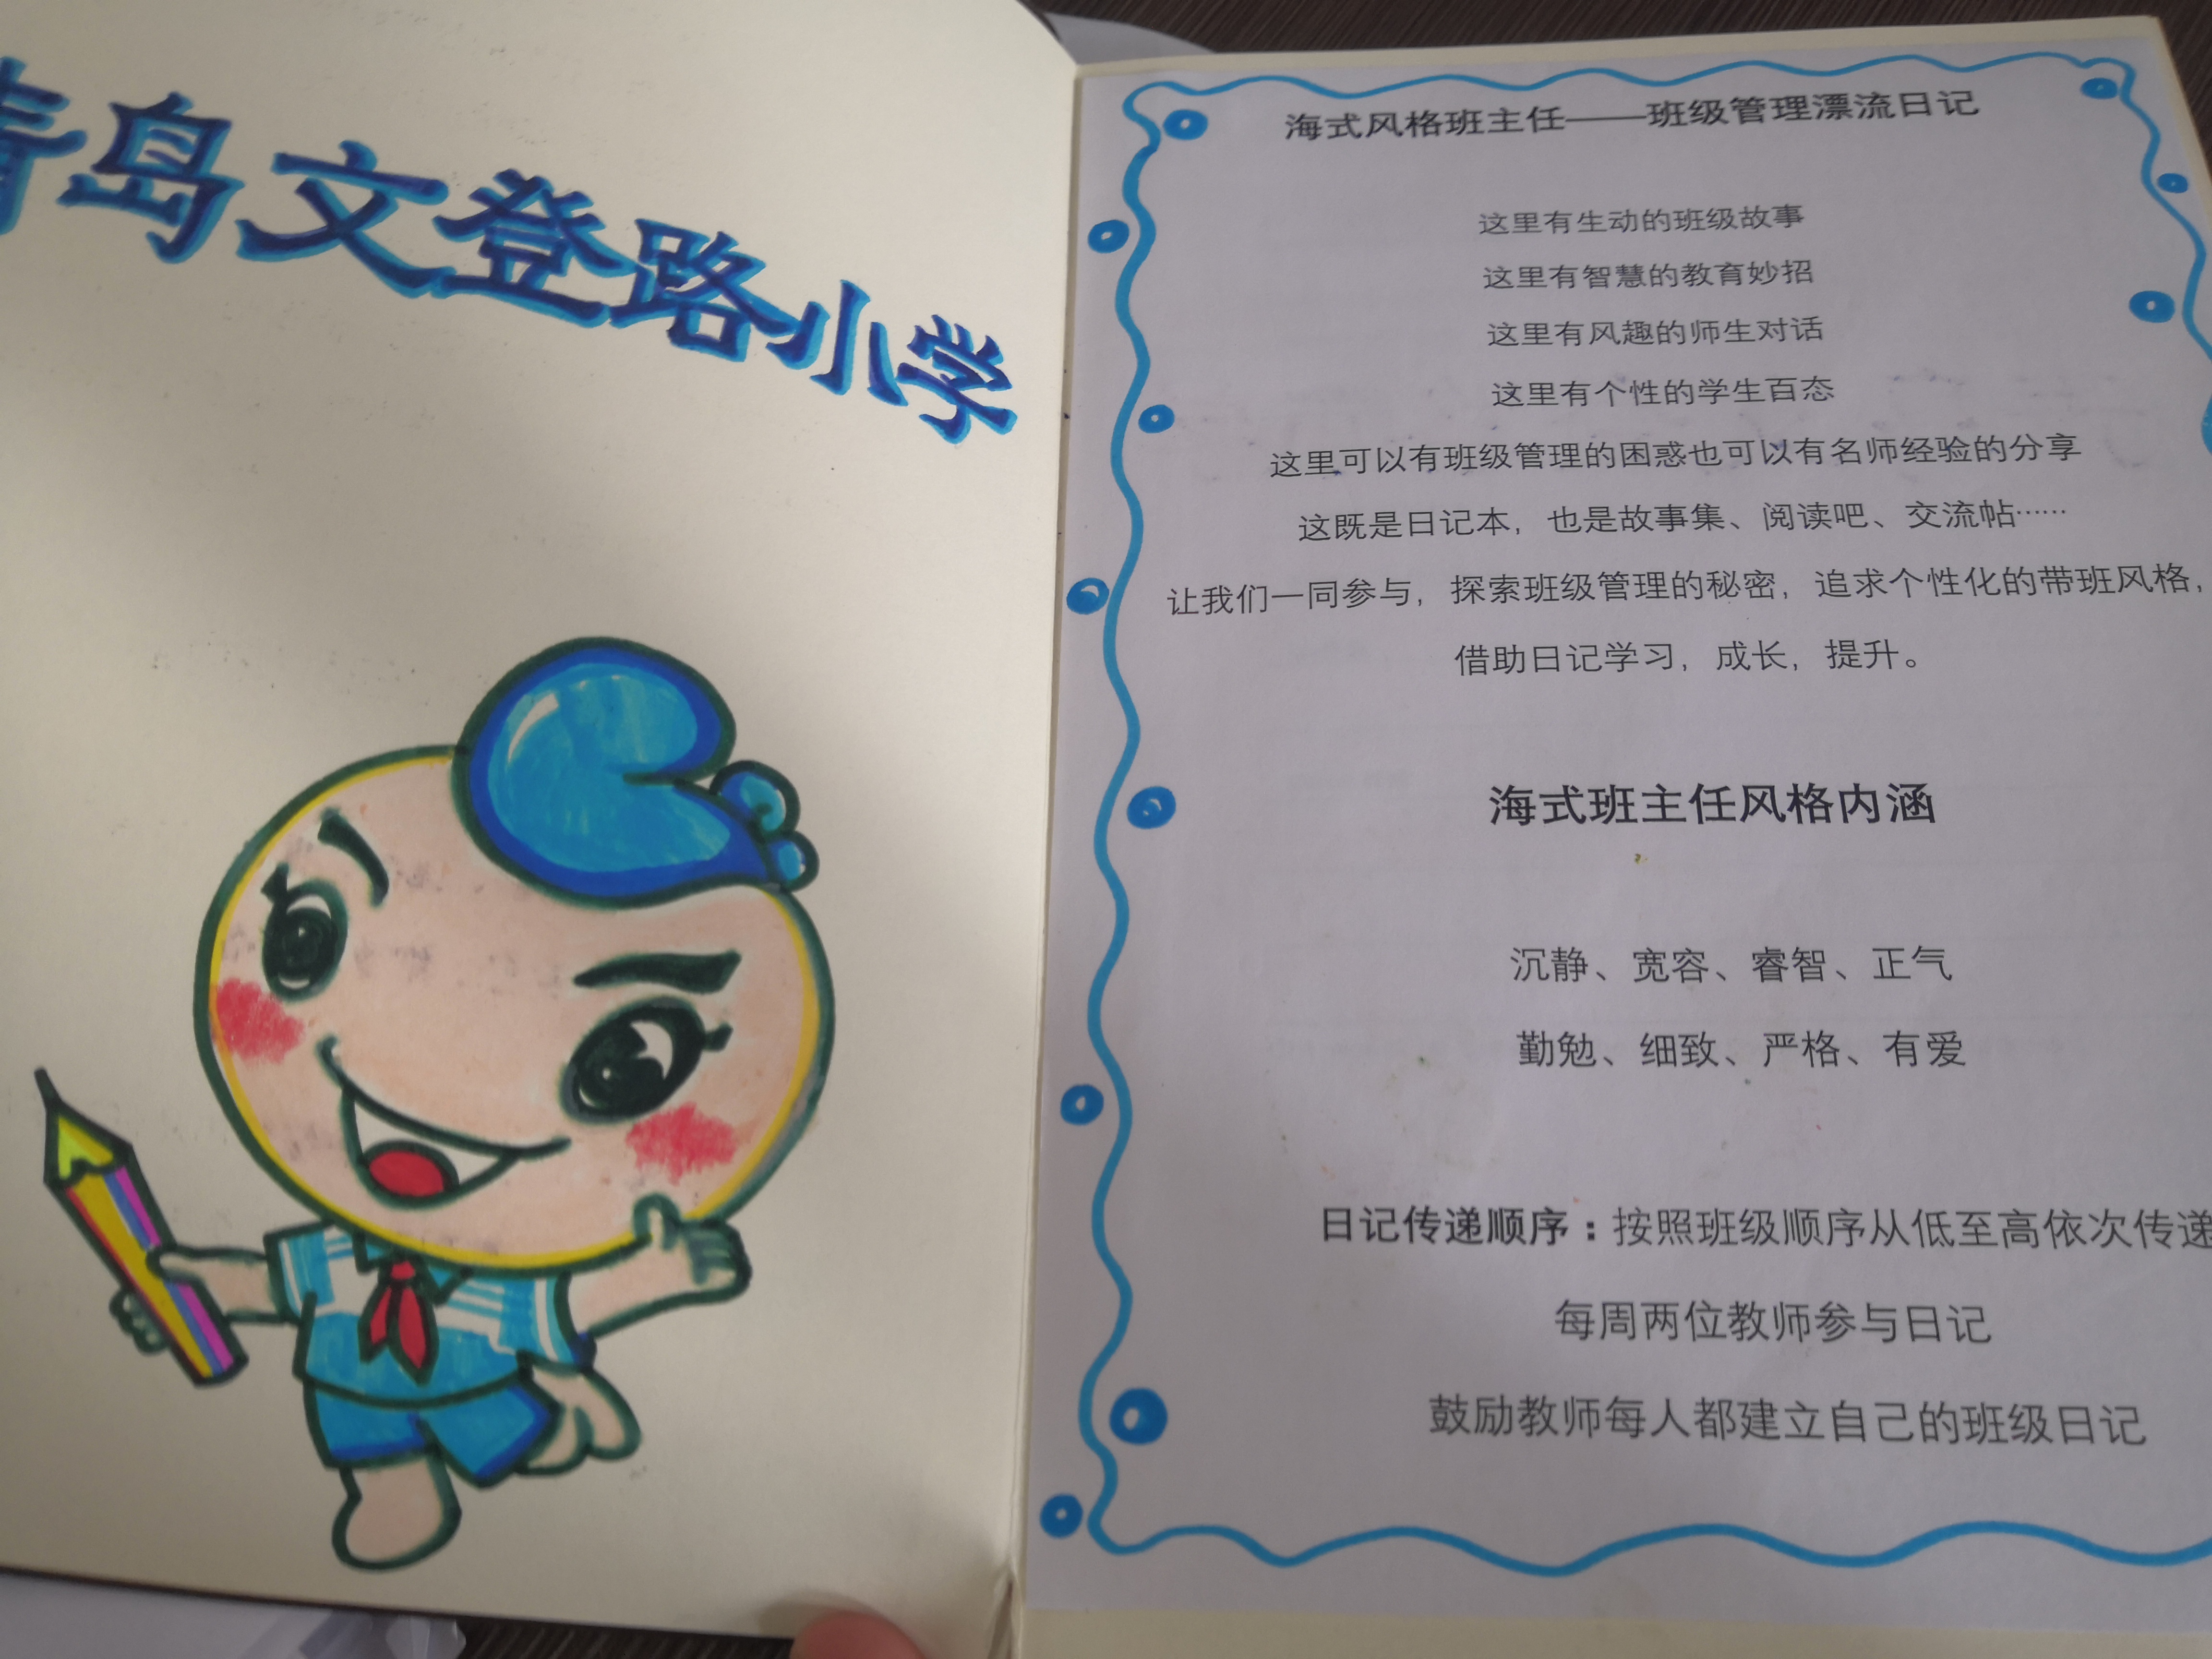 青岛文登路小学
海式风格班主任——班级管理漂流日记
这里有生动的班级故事
这里有智慧的教育妙招
这里有风趣的师生对话
这里有个性的学生百态
这里可以有班级管理的困惑也可以有名师经验的分享
这既是日记本，也是故事集、阅读吧、交流帖……
让我们一同参与，探索班级管理的秘密，追求个性化的带班风格，
借助日记学习，成长，提升。
海式班主任风格内涵
沉静、宽容、睿智、正气
勤勉、细致、严格、有爱
日记传递顺序：按照班级顺序从低至高依次传递
每周两位教师参与日记
鼓励教师每人都建立自己的班级日记